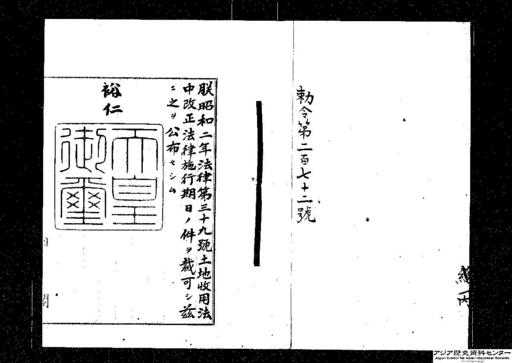 勅令第二百七十二號
朕昭和二年法律第三十九號土地收用法
中改正法律施行期日ノ件ヲ裁可シ茲
ニ之ヲ公布セシム
裕仁
天皇
御璽
内閣
アジア歴史資料センター
Japan Center for Asian Historical Records